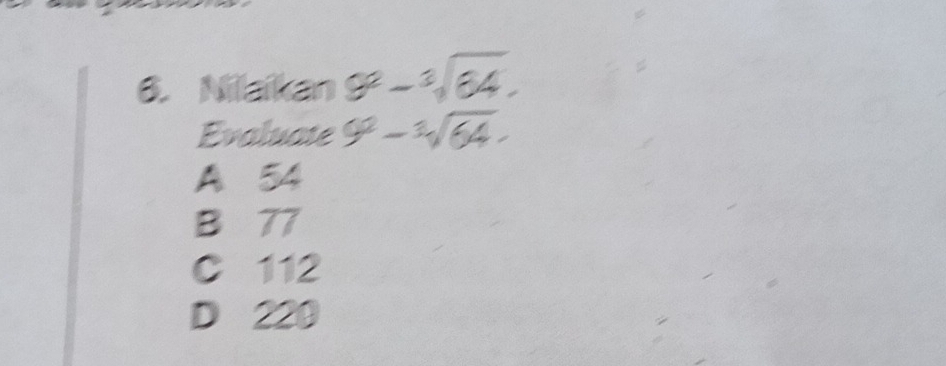 6. Nilaikan 9² − ³√64.
Evaluate 9² − ³√64.
A 54
B 77
C 112
D 220